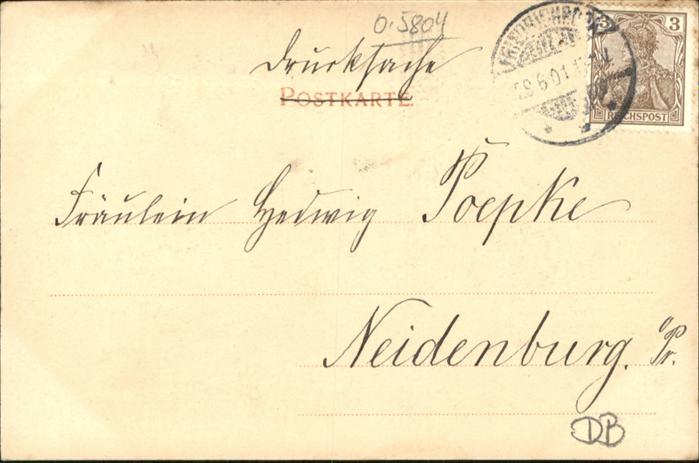 0.5804
3 3
REICHSPOST
29.6.01
Drucksache
POSTKARTE
Fräulein Hedwig Poepke
Neidenburg. O/Pr.
DB